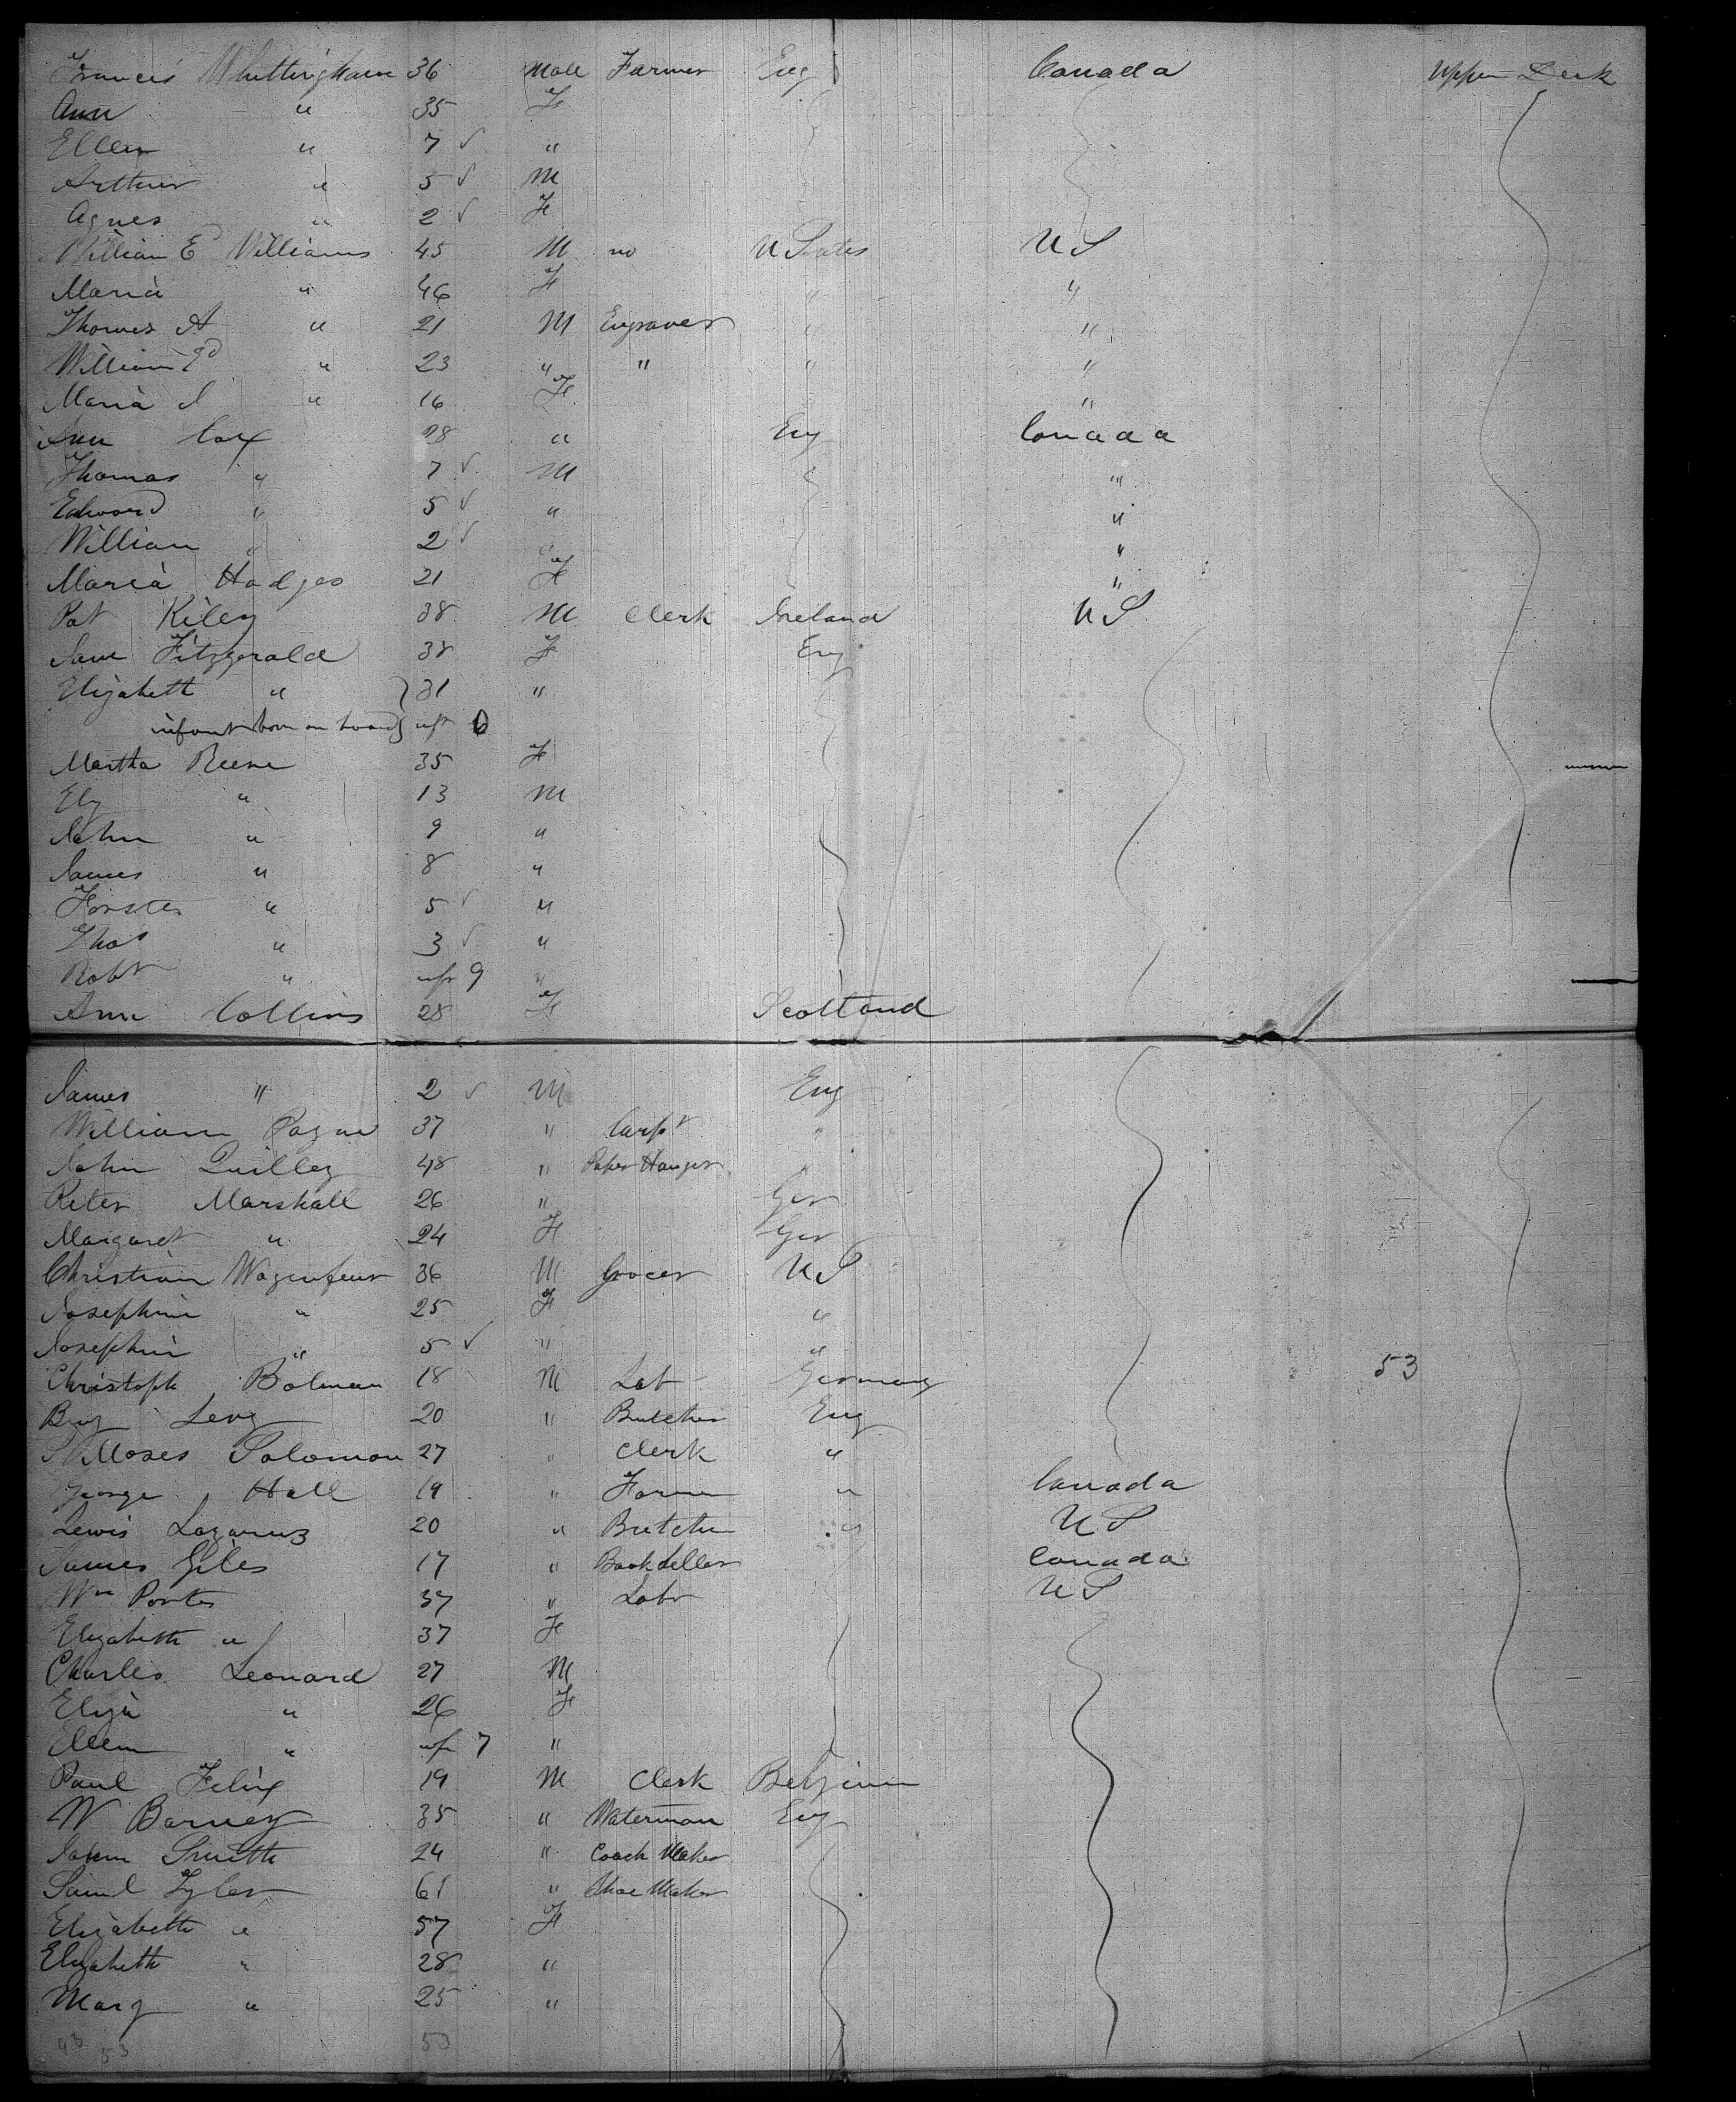 Francis Whittingham 36 Male Farmer Eng Canada Upper Deck
Ann " 35 F
Ellen " 7 ✓ "
Arthur " 5 ✓ M
Agnes " 2 ✓ F
William E Williams 45 M no U States U S
Maria " 46 F " "
Thomas A " 21 M Engraver " "
William " 23 " " " "
Maria " 16 F "
Ann Cox 28 " Eng Canada
Thomas " 7 ✓ M "
Edward " 5 ✓ " "
William " 2 ✓ " "
Maria Hodges 21 F "
Pat Kiley 38 M Clerk Ireland U S
Jane Fitzgerald 38 F Eng
Elizabeth " } 31 "
infant born on board } inft 0
Martha Reeve 35 F
Ely " 13 M
John " 9 "
James " 8 "
Forster " 5 ✓ "
Thos " 3 ✓ "
Robt " inft 9 "
Ann Collins 28 F Scotland
James " 2 ✓ M Eng
William Pagne 37 " Carpr "
John Quilley 48 " Paper Hanger "
Peter Marshall 26 " Ger
Margaret " 24 F Ger
Christian 36 M Grocer U S
Josephine " 25 F "
Josephine " 5 ✓ " "
Christoph Bolman 18 M Lab Germany 53
Benj Levy 20 " Butcher Eng
Moses Solomon 27 " Clerk "
George Hall 19 " Farmer " Canada
Lewis Lazarus 20 " Butcher " U S
James Giles 17 " Book Seller Canada
Wm Porter 37 " Labr U S
Elizabeth " 37 F
Charles Leonard 27 M
Eliza " 26 F
Ellen " inft 7 "
Paul Felix 19 M Clerk Belgium
W Barney 35 " Waterman Eng
John Smith 24 " Coach Maker
Saml Tyler 61 " Shoe Maker
Elizabeth " 57 F
Elizabeth " 28 "
Mary " 25 "
53